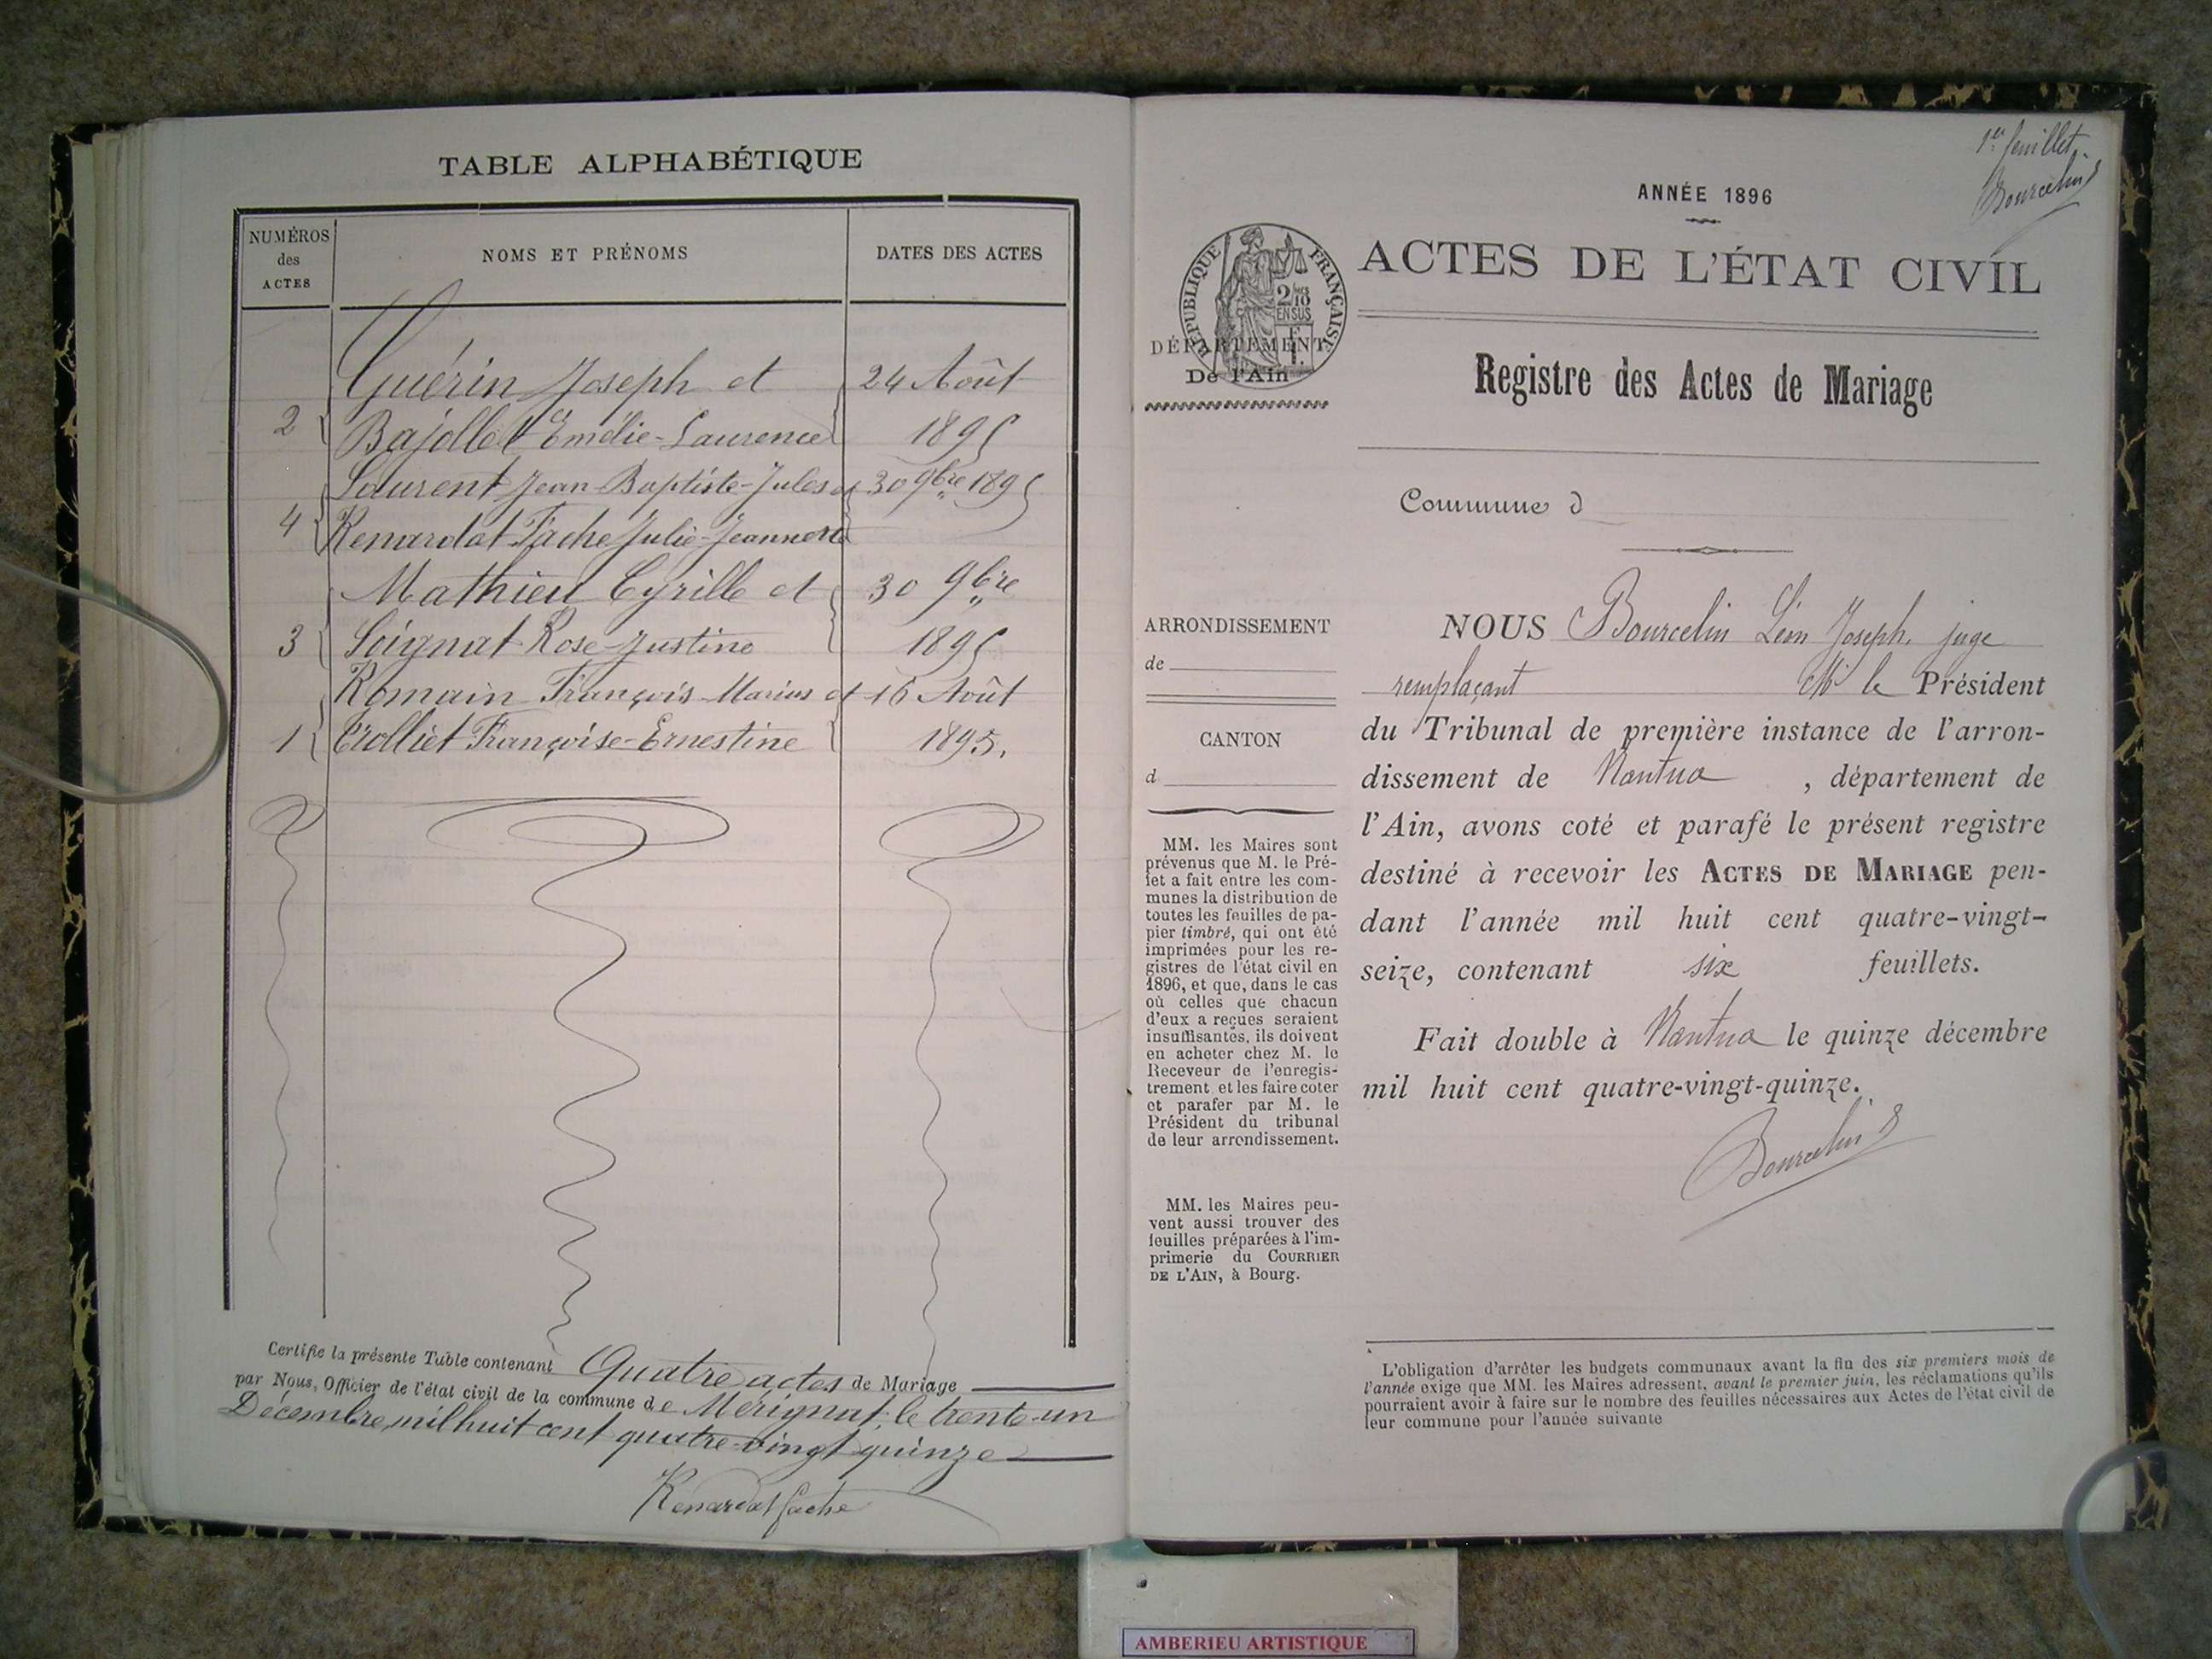 TABLE ALPHABÉTIQUE
NUMÉROS
des
ACTES
NOMS ET PRÉNOMS
DATES DES ACTES
Guérin Joseph et 24 Août
2 Bajollet Emélie-Laurence 1895
Laurent Jean-Baptiste-Jules et 30 9bre 1895
4 Renardat Fache Julie-Jeannette
Mathieu Cyrille et 30 9bre
3 Soignat Rose-Justine 1895
Romain François-Marius et 16 Août
1 Trolliet Françoise-Ernestine 1895.
Certifie la présente Table contenant Quatre actes de Mariage
par Nous, Officier de l'état civil de la commune de Mérignat, le trente-un
Décembre mil huit cent quatre-vingt quinze
Renardat fache
1er feuillet.
Bourcelin
ANNÉE 1896
RÉPUBLIQUE FRANÇAISE
2/10
EN SUS
DÉPARTEMENT
De l'Ain
ACTES DE L'ÉTAT CIVIL
Registre des Actes de Mariage
Commune d
ARRONDISSEMENT
de
CANTON
d
MM. les Maires sont
prévenus que M. le Pré-
fet a fait entre les com-
munes la distribution de
toutes les feuilles de pa-
pier timbré, qui ont été
imprimées pour les re-
gistres de l'état civil en
1896, et que, dans le cas
où celles que chacun
d'eux a reçues seraient
insuffisantes, ils doivent
en acheter chez M. le
Receveur de l'enregis-
trement et les faire coter
et parafer par M. le
Président du tribunal
de leur arrondissement.
MM. les Maires peu-
vent aussi trouver des
feuilles préparées à l'im-
primerie du COURRIER
DE L'AIN, à Bourg.
NOUS Bourcelin Léon Joseph, juge
remplaçant M le Président
du Tribunal de première instance de l'arron-
dissement de Nantua , département de
l'Ain, avons coté et parafé le présent registre
destiné à recevoir les ACTES DE MARIAGE pen-
dant l'année mil huit cent quatre-vingt-
seize, contenant six feuillets.
Fait double à Nantua le quinze décembre
mil huit cent quatre-vingt-quinze.
Bourcelin
L'obligation d'arrêter les budgets communaux avant la fin des six premiers mois de
l'année exige que MM. les Maires adressent, avant le premier juin, les réclamations qu'ils
pourraient avoir à faire sur le nombre des feuilles nécessaires aux Actes de l'état civil de
leur commune pour l'année suivante
AMBERIEU ARTISTIQUE